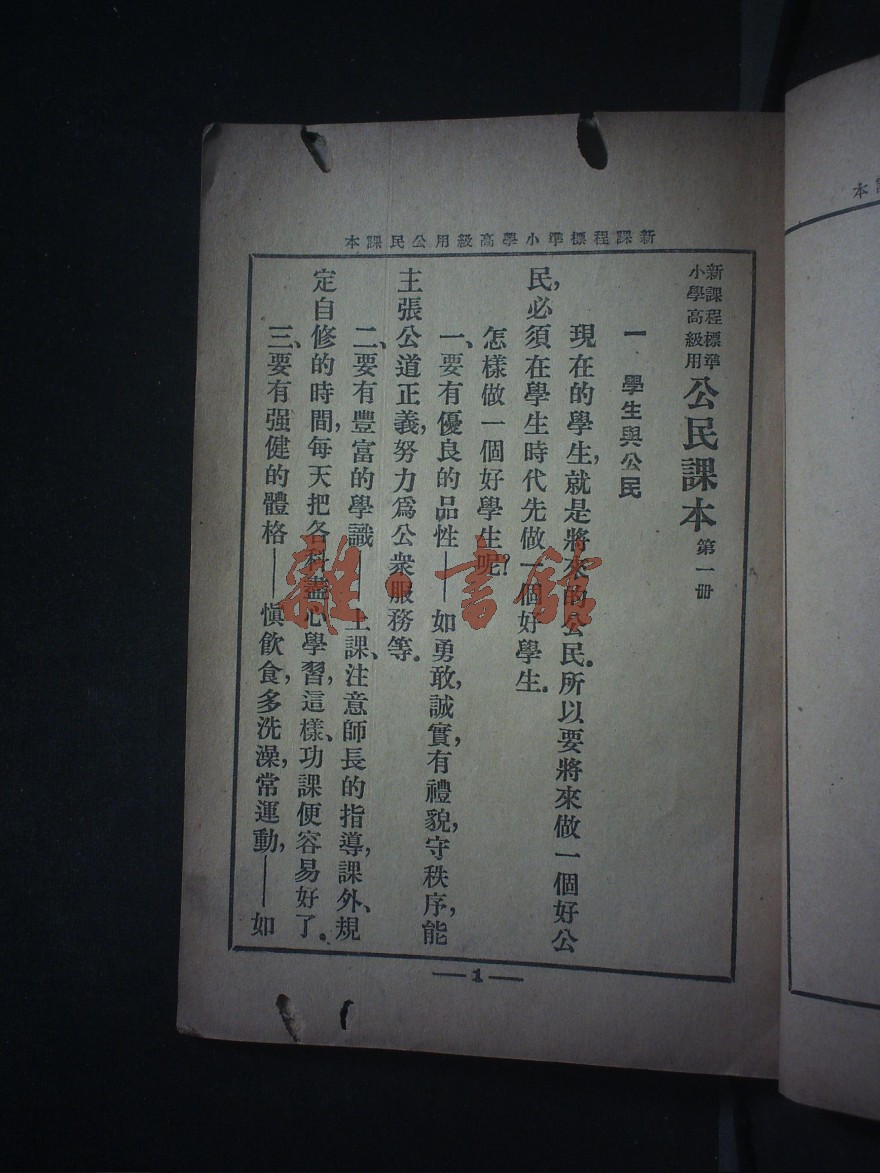 本課民公用級高學小準標程課新
新課程標準
小學高級用
公民課本 第一册
一 學生與公民
現在的學生,就是將來的公民.所以要將來做一個好公
民,必須在學生時代先做一個好學生.
怎樣做一個好學生呢?
一、要有優良的品性——如勇敢,誠實,有禮貌,守秩序,能
主張公道正義,努力爲公衆服務等.
二、要有豐富的學識 上課、注意師長的指導,課外、規
定自修的時間,每天把各科盡心學習,這樣、功課便容易好了.
三、要有强健的體格——愼飲食,多洗澡,常運動,——如
—1—
雜·書館
本